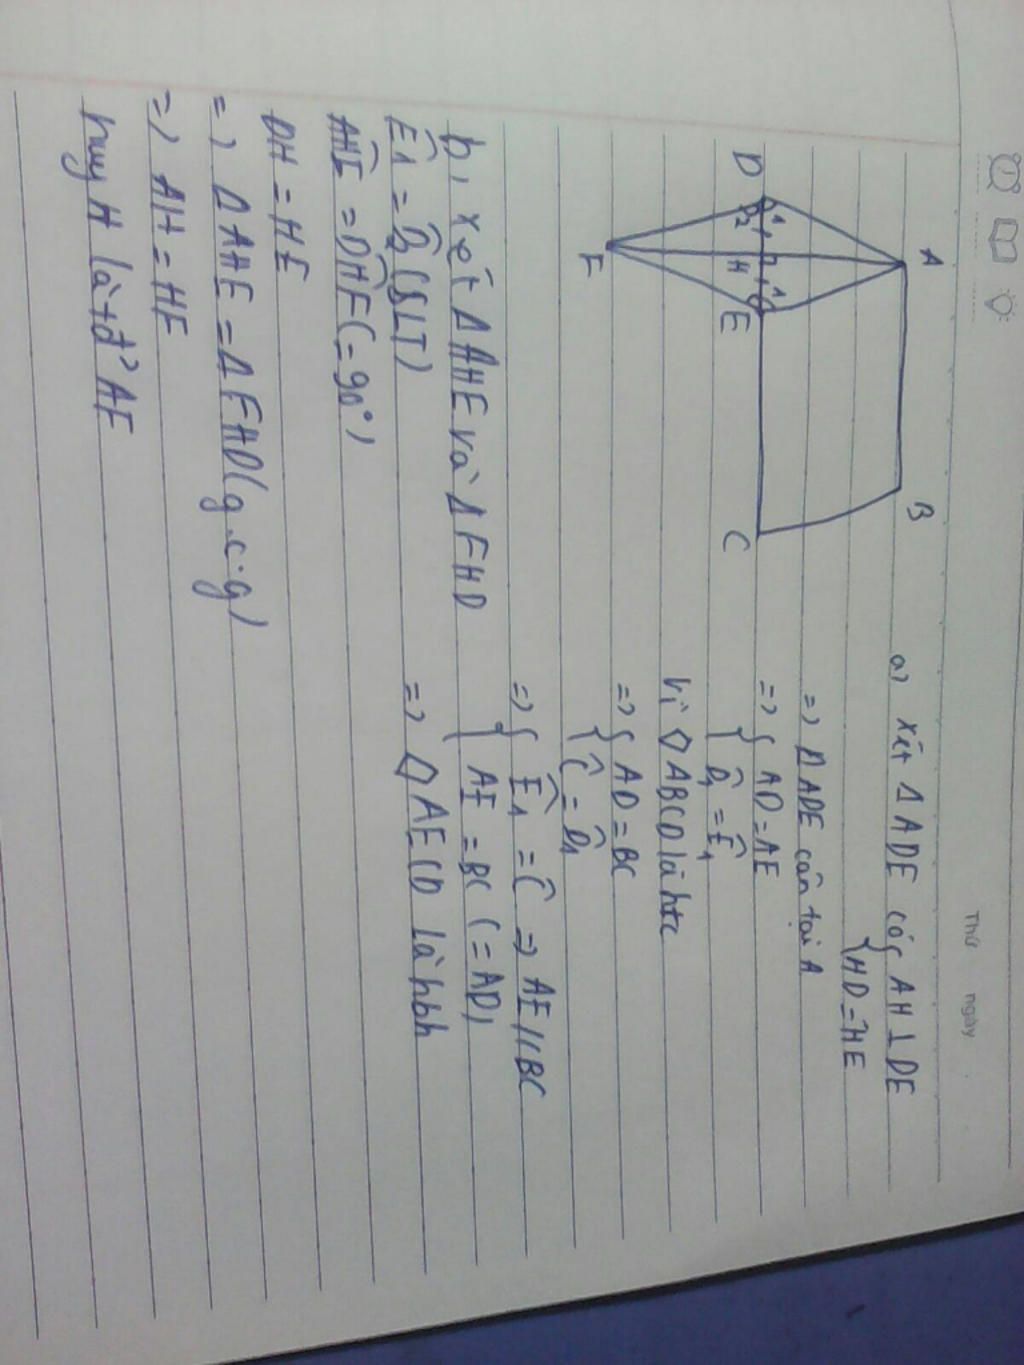 Thứ ngày
A
B
D
1
2
H
1
E
C
F
a) xét Δ ADE có { AH ⊥ DE
HD = HE
=> Δ ADE cân tại A
=> { AD = AE
D̂1 = Ê1
vì ◇ ABCD là htc
=> { AD = BC
Ĉ = D̂1
=> { Ê1 = Ĉ => AE // BC
AE = BC (= AD)
=> ◇ AECD là hbh
b, xét Δ AHE và Δ FHD
Ê1 = D̂2 (SLT)
AHE = DHF (= 90°)
DH = HE
=> Δ AHE = Δ FHD (g.c.g)
=> AH = HF
hay H là tđ' AF